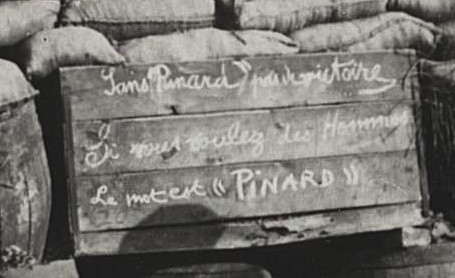 Sans "Pinard" pas de victoire
Si vous voulez des Hommes
Le mot est « PINARD »